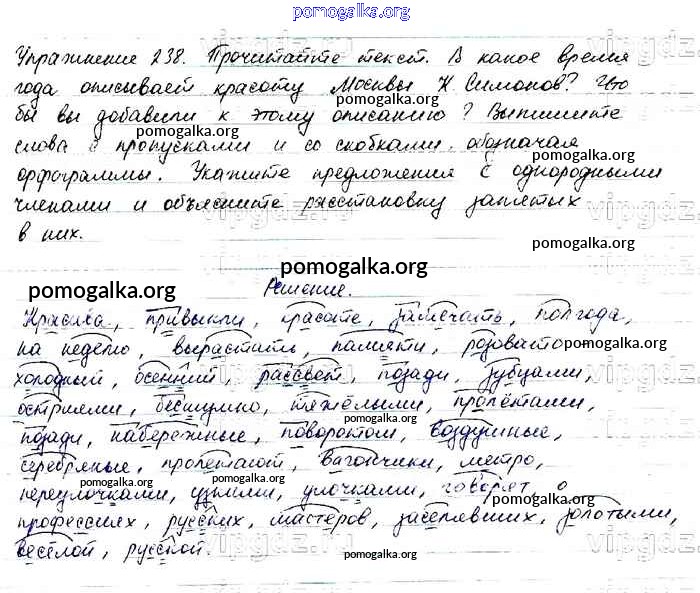 pomogalka.org
Упражнение 238. Прочитайте текст. В какое время
года описывает красоту Москвы К. Симонов? Что
pomogalka.org
бы вы добавили к этому описанию? Выпишите
pomogalka.org
слова с пропусками и со скобками, обозначая
pomogalka.org
орфограммы. Укажите предложения с однородными
членами и объясните расстановку запятых
в них.
pomogalka.org
pomogalka.org
pomogalka.org
Решение.
Красива, привыкли, красоте, замечать, полгода,
на неделю, вырастить, памяти, розовато
pomogalka.org
холодный, осенний, рассвет, позади, зубцами,
остриями, бесшумно, тяжёлыми, пролётами,
pomogalka.org
позади, набережные, поворотом, воздушные,
pomogalka.org
серебряные, пролетают, вагончики, метро,
pomogalka.org
pomogalka.org
переулочками, узкими, улочками, говорят о
pomogalka.org
профессиях, русских, мастеров, заселявших, золотыми,
весёлой, русской.
pomogalka.org